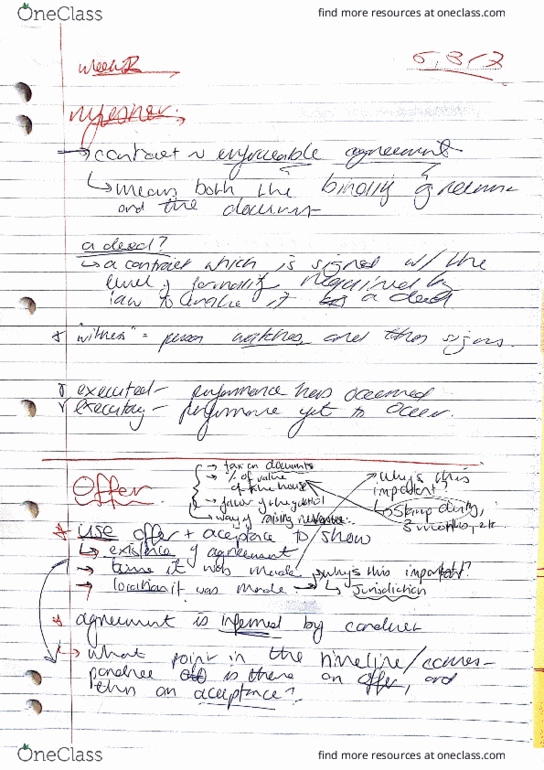 OneClass
find more resources at oneclass.com
week 2
5/3/2
refresher.
→ contract ~ enforceable agreement
↳ means both the binding agreement
and the document
a deed?
↳ a contract which is signed w/ the
level of formality required by
law to it a deed
* "witness" = person watches and then signs.
* executed - performance has occurred
* executory - performance yet to occur.
Offer
→ tax on documents
→ % of value
of the house
→
→ way of raising revenue.
→ why's this
important?
↳ Stamp duty,
3 months, etc
* use offer + acceptance to show
↳ existence of agreement
→ time it was made → why's this important?
→ location it was made → ↳ Jurisdiction
* agreement is inferred by conduct
↳ what point in the timeline/corres-
pondence is there an offer, and
then an acceptance?
OneClass
find more resources at oneclass.com